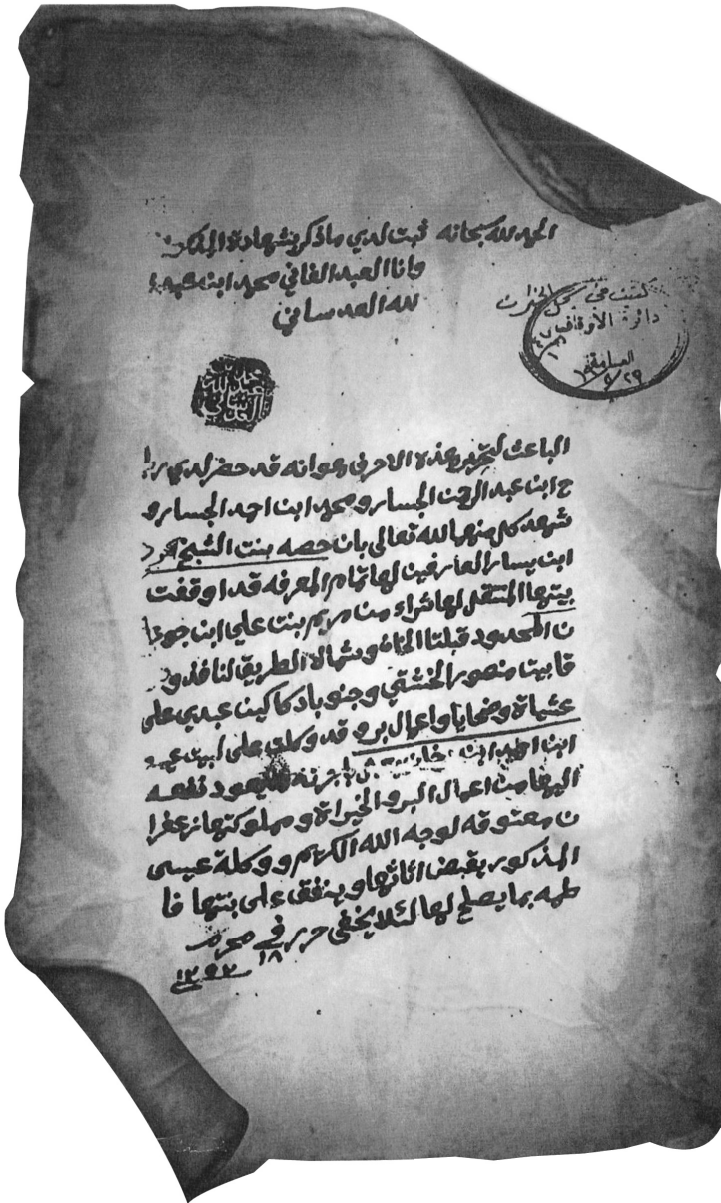 الحمد لله سبحانه ثبت لدي ماذكر بشهادة المذكورين
وانا العبد الفاني محمد ابن عبد
لله العدساني
سجل الخيرات
دائرة الأوقاف
محمد بن عبد لله العدساني
الباعث لتحرير هذه الاحرف هوانه قد حضر لدي ربا
ح ابن عبد الرحمن الجسار ومحمد ابن احمد الجسار و
شهد كل منهما لله تعالى بان حصه بنت الشيخ
ابن يسار العارفين لها تمام المعرفه قد اوقفت
بيتها المنتقل لها شراء من مريم بنت علي ابن
ن المحدود قبلتا وشمالا الطريق النافذ و
قا بيت منصور الخشتي وجنوبا دكاكين عبدي على
عشياة وضحايا واعمال بر وقد وكلة على
ابن نفعه
اليها من اعمال البر والخيراة ومملوكتها زعفرا
ن معتوقه لوجه الله الكريم ووكلة عيسى
المذكور بقبض اثاثها وينفق على بنتها فا
طمه بما يصلح لها لئلا يخفى حرر في محرم
١٨